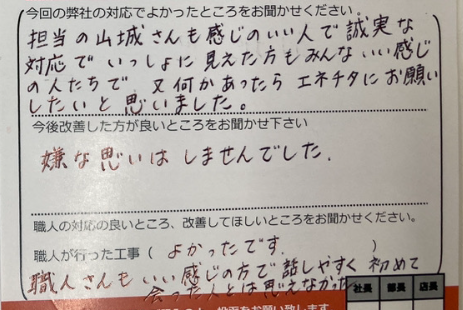 今回の弊社の対応でよかったところをお聞かせください。
担当の山城さんも感じのいい人で誠実な
対応で いっしょに見えた方もみんないい感じ
の人たちで 又何かあったら エネチタにお願い
したいと思いました。
今後改善した方が良いところをお聞かせ下さい
嫌な思いは しませんでした.
職人の対応の良いところ、改善してほしいところをお聞かせください。
職人が行った工事 ( よかったです. )
職人さんも いい感じの方で話しやすく 初めて
会った人とは思えなかっ
社長 部長 店長